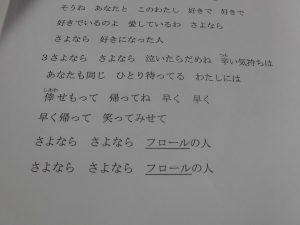 そうね あなたと このわたし 好きで 好きで
好きでいるのよ 愛しているわ さよなら
さよなら 好きになった人
3さよなら さよなら 泣いたらだめね 辛い気持ちは
あなたも同じ ひとり待ってる わたしには
倖せもって 帰ってね 早く 早く
早く帰って 笑ってみせて
さよなら さよなら フロールの人
さよなら さよなら フロールの人